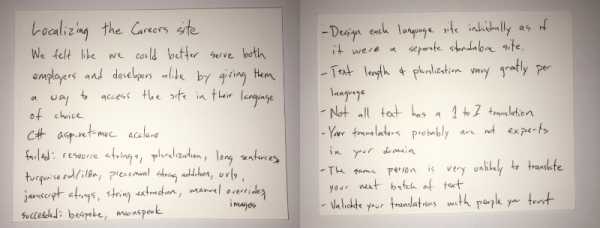 Localizing the Careers site
We felt like we could better serve both
employers and developers alike by giving them
a way to access the site in their language
of choice
C# asp.net-mvc
failed: resource strings, pluralization, long sentences,
string addition, urls,
javascript strings, string extraction, manual overrides,
images
succeeded: bespoke, moonspeak
- Design each language site individually as if
it were a separate standalone site.
- Text length & pluralization vary greatly per
language
- Not all text has a 1 to 1 translation
- Your translators probably are not experts
in your domain
- The same person is very unlikely to translate
your next batch of text
- Validate your translations with people you trust